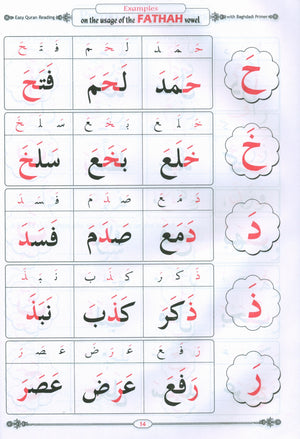 Examples
Easy Quran Reading on the usage of the FATHAH vowel with Baghdadi Primer
حَ مَ دَ لَ حَ مَ فَ تَ حَ
حَ حَمَدَ لَحَمَ فَتَحَ
خَ لَ عَ بَ خَ عَ سَ لَ خَ
خَ خَلَعَ بَخَعَ سَلَخَ
دَ مَ عَ صَ دَ مَ فَ سَ دَ
دَ دَمَعَ صَدَمَ فَسَدَ
ذَ كَ رَ كَ ذَ بَ نَ بَ ذَ
ذَ ذَكَرَ كَذَبَ نَبَذَ
رَ فَ عَ عَ رَ ضَ عَ صَ رَ
رَ رَفَعَ عَرَضَ عَصَرَ
14